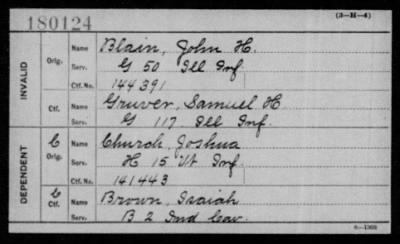 180124 (3-H-4)
INVALID
Orig. Name Blain, John H.
Serv. G 50 Ill Inf
Ctf. No. 144391
Ctf. Name Gruver, Samuel H
Serv. G 117 Ill Inf.
DEPENDENT
C Orig. Name Church, Joshua
Serv. H 15 Vt Inf
Ctf. No. 141443
C Ctf. Name Brown, Isaiah
Serv. B 2 Ind Cav.